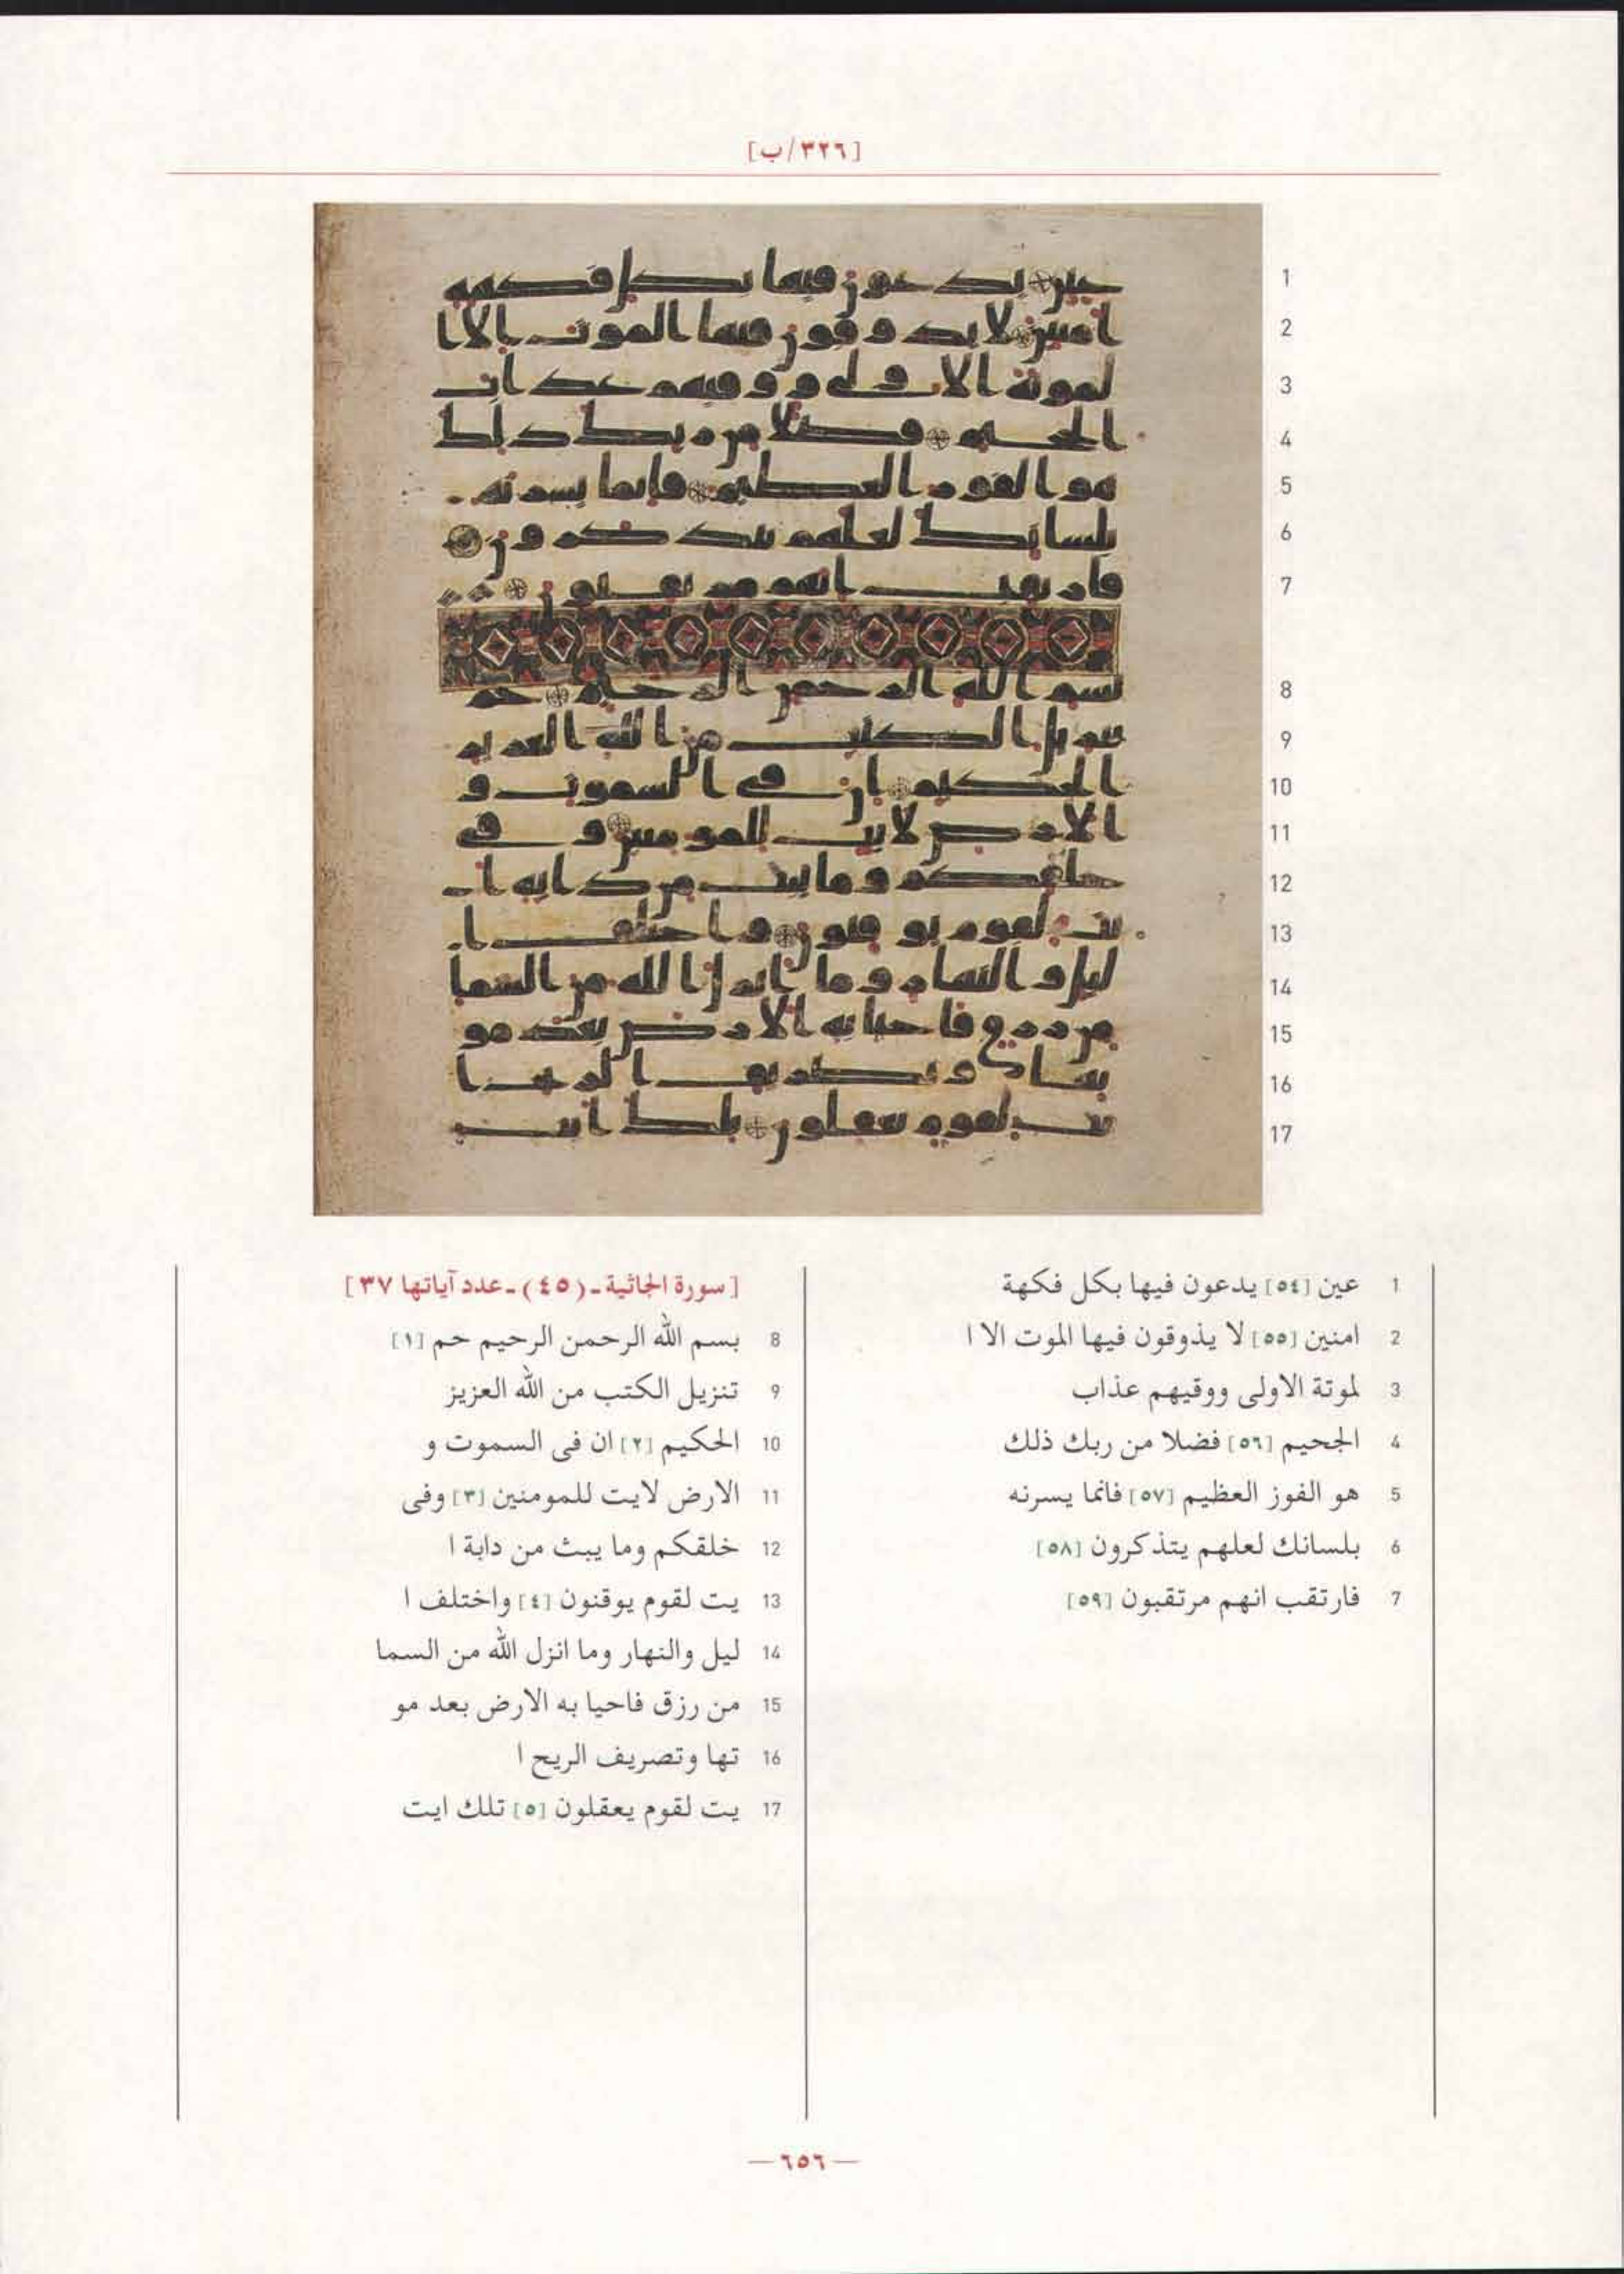 [٣٢٦/ب]
1 عين [٥٤] يدعون فيها بكل فكهة
2 امنين [٥٥] لا يذوقون فيها الموت الا ا
3 لموتة الاولى ووقيهم عذاب
4 الجحيم [٥٦] فضلا من ربك ذلك
5 هو الفوز العظيم [٥٧] فانما يسرنه
6 بلسانك لعلهم يتذكرون [٥٨]
7 فارتقب انهم مرتقبون [٥٩]
[سورة الجاثية ـ (٤٥) ـ عدد آياتها ٣٧]
8 بسم الله الرحمن الرحيم حم [١]
9 تنزيل الكتب من الله العزيز
10 الحكيم [٢] ان فى السموت و
11 الارض لايت للمومنين [٣] وفى
12 خلقكم وما يبث من دابة ا
13 يت لقوم يوقنون [٤] واختلف ا
14 ليل والنهار وما انزل الله من السما
15 من رزق فاحيا به الارض بعد مو
16 تها وتصريف الريح ا
17 يت لقوم يعقلون [٥] تلك ايت
— ٦٥٦ —